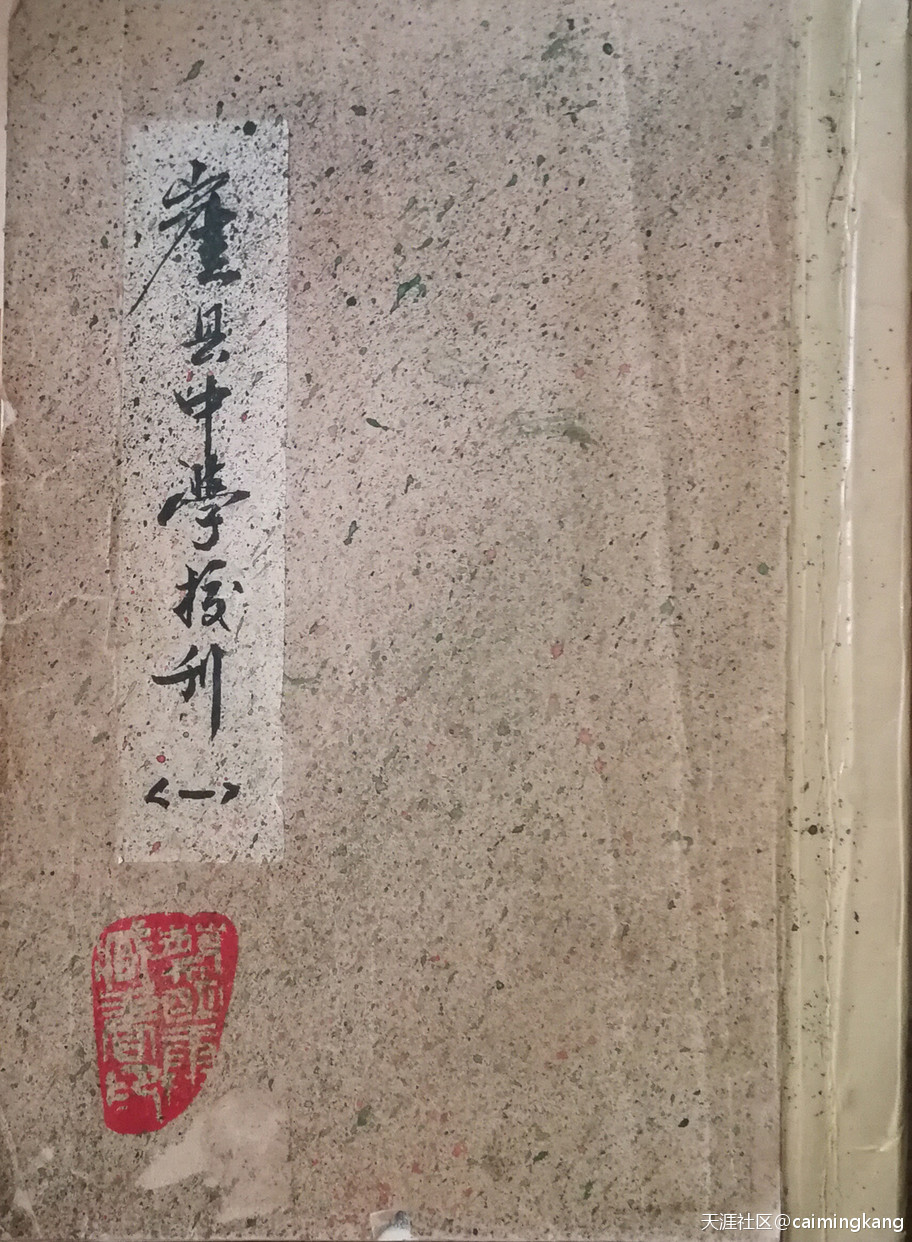 崖县中學校刊
<一>
藏書
天涯社区@caimingkang